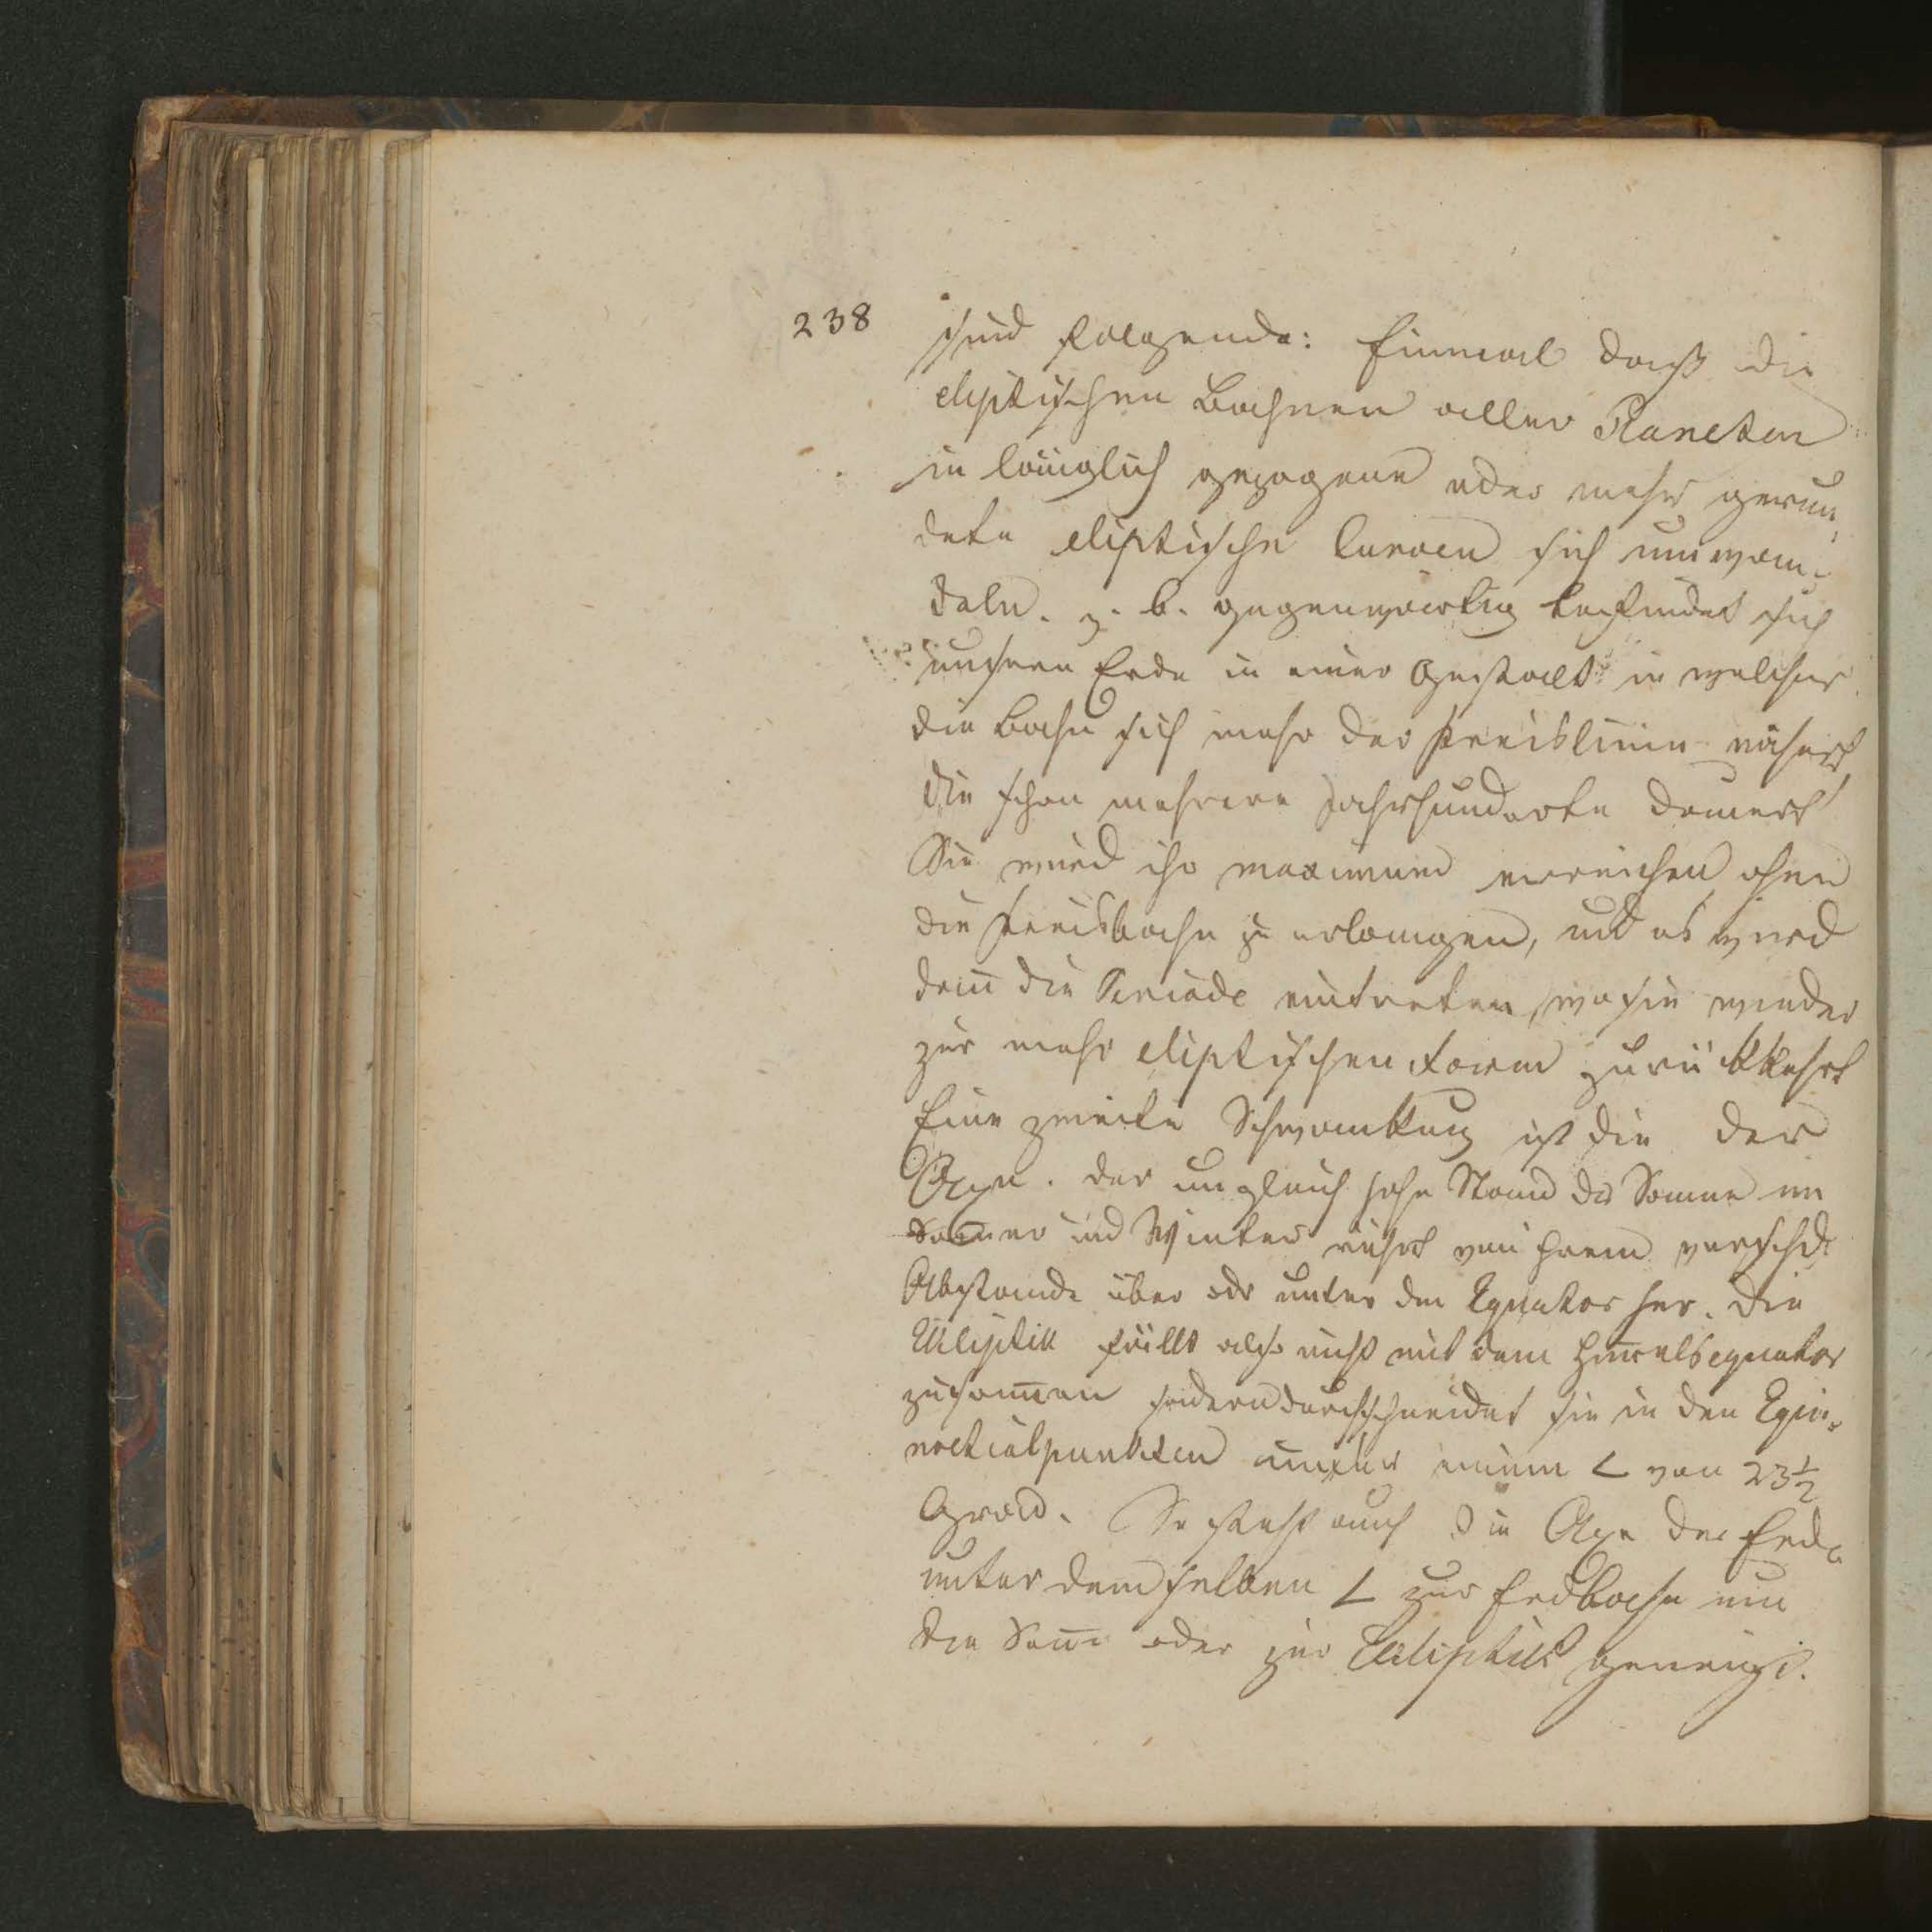 238
sind folgende: Einmal daß die
eliptischen Bahnen aller Planeten
in länglich gezogene oder mehr gerun¬
dete eliptische Curven sich umwan¬
deln. z. B. gegenwärtig befindet sich
unsere Erde in einer Gestalt in welcher
die Bahn sich mehr der Kreislinie nähert,
die schon mehrere Jahrhunderte dauert
Sie wird ihr maximum erreichen ohne
die Kreisbahn zu erlangen, und es wird
dañ die Periode eintreten, wo sie wieder
zur mehr eliptischen Form zurükkehrt
Eine zweite Schwankung ist die der
Axe. Der ungleich hohe Stand der Sonne im
Som̄er und Winter rührt von ihrem verschd.
Abstande über odr unter dem Equator her. Die
Ekliptik fällt also nicht mit dem Him̄elsequator
zusam̄en sondern durchschneidet sie in den Equi¬
noctialpunkten unter einem ∠ von 23½
Grad. So steht auch die Axe der Erde
unter demselben ∠ zur Erdbahn um
die Son̄e oder zur Ekliptik geneigt.